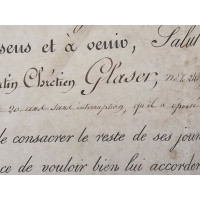 sens et à venir, Salut
tin Chrétien Glaser, né le 24
20 ans sans interruption, qu'il a épousé
de consacrer le reste de ses jours
ce de vouloir bien lui accorder